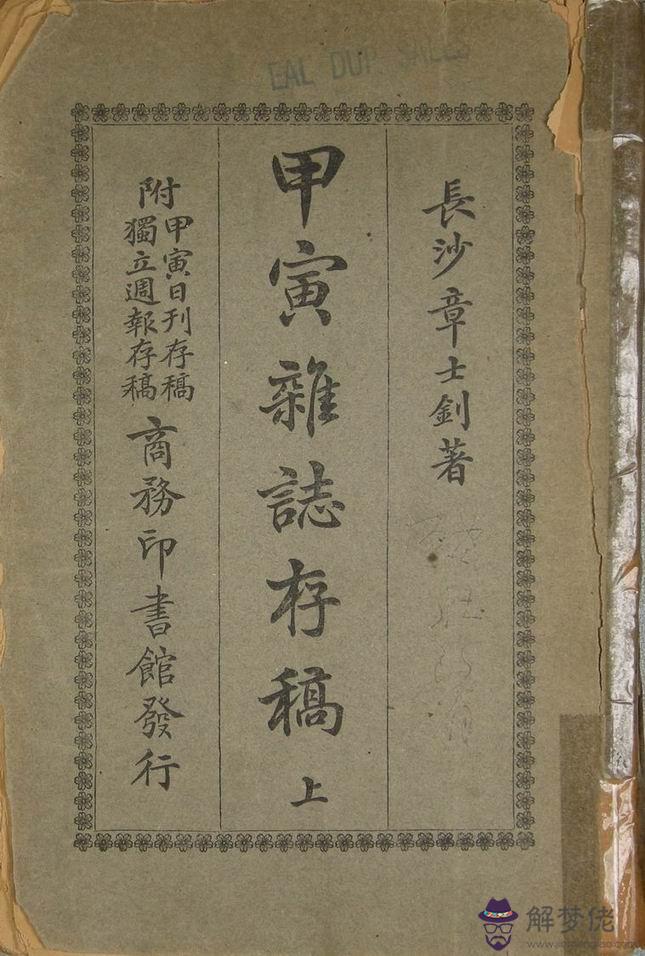 EAL DUP. SALES
長沙章士釗著
甲寅雜誌存稿 上
附
甲寅日刊存稿
獨立週報存稿
商務印書館發行
解梦佬